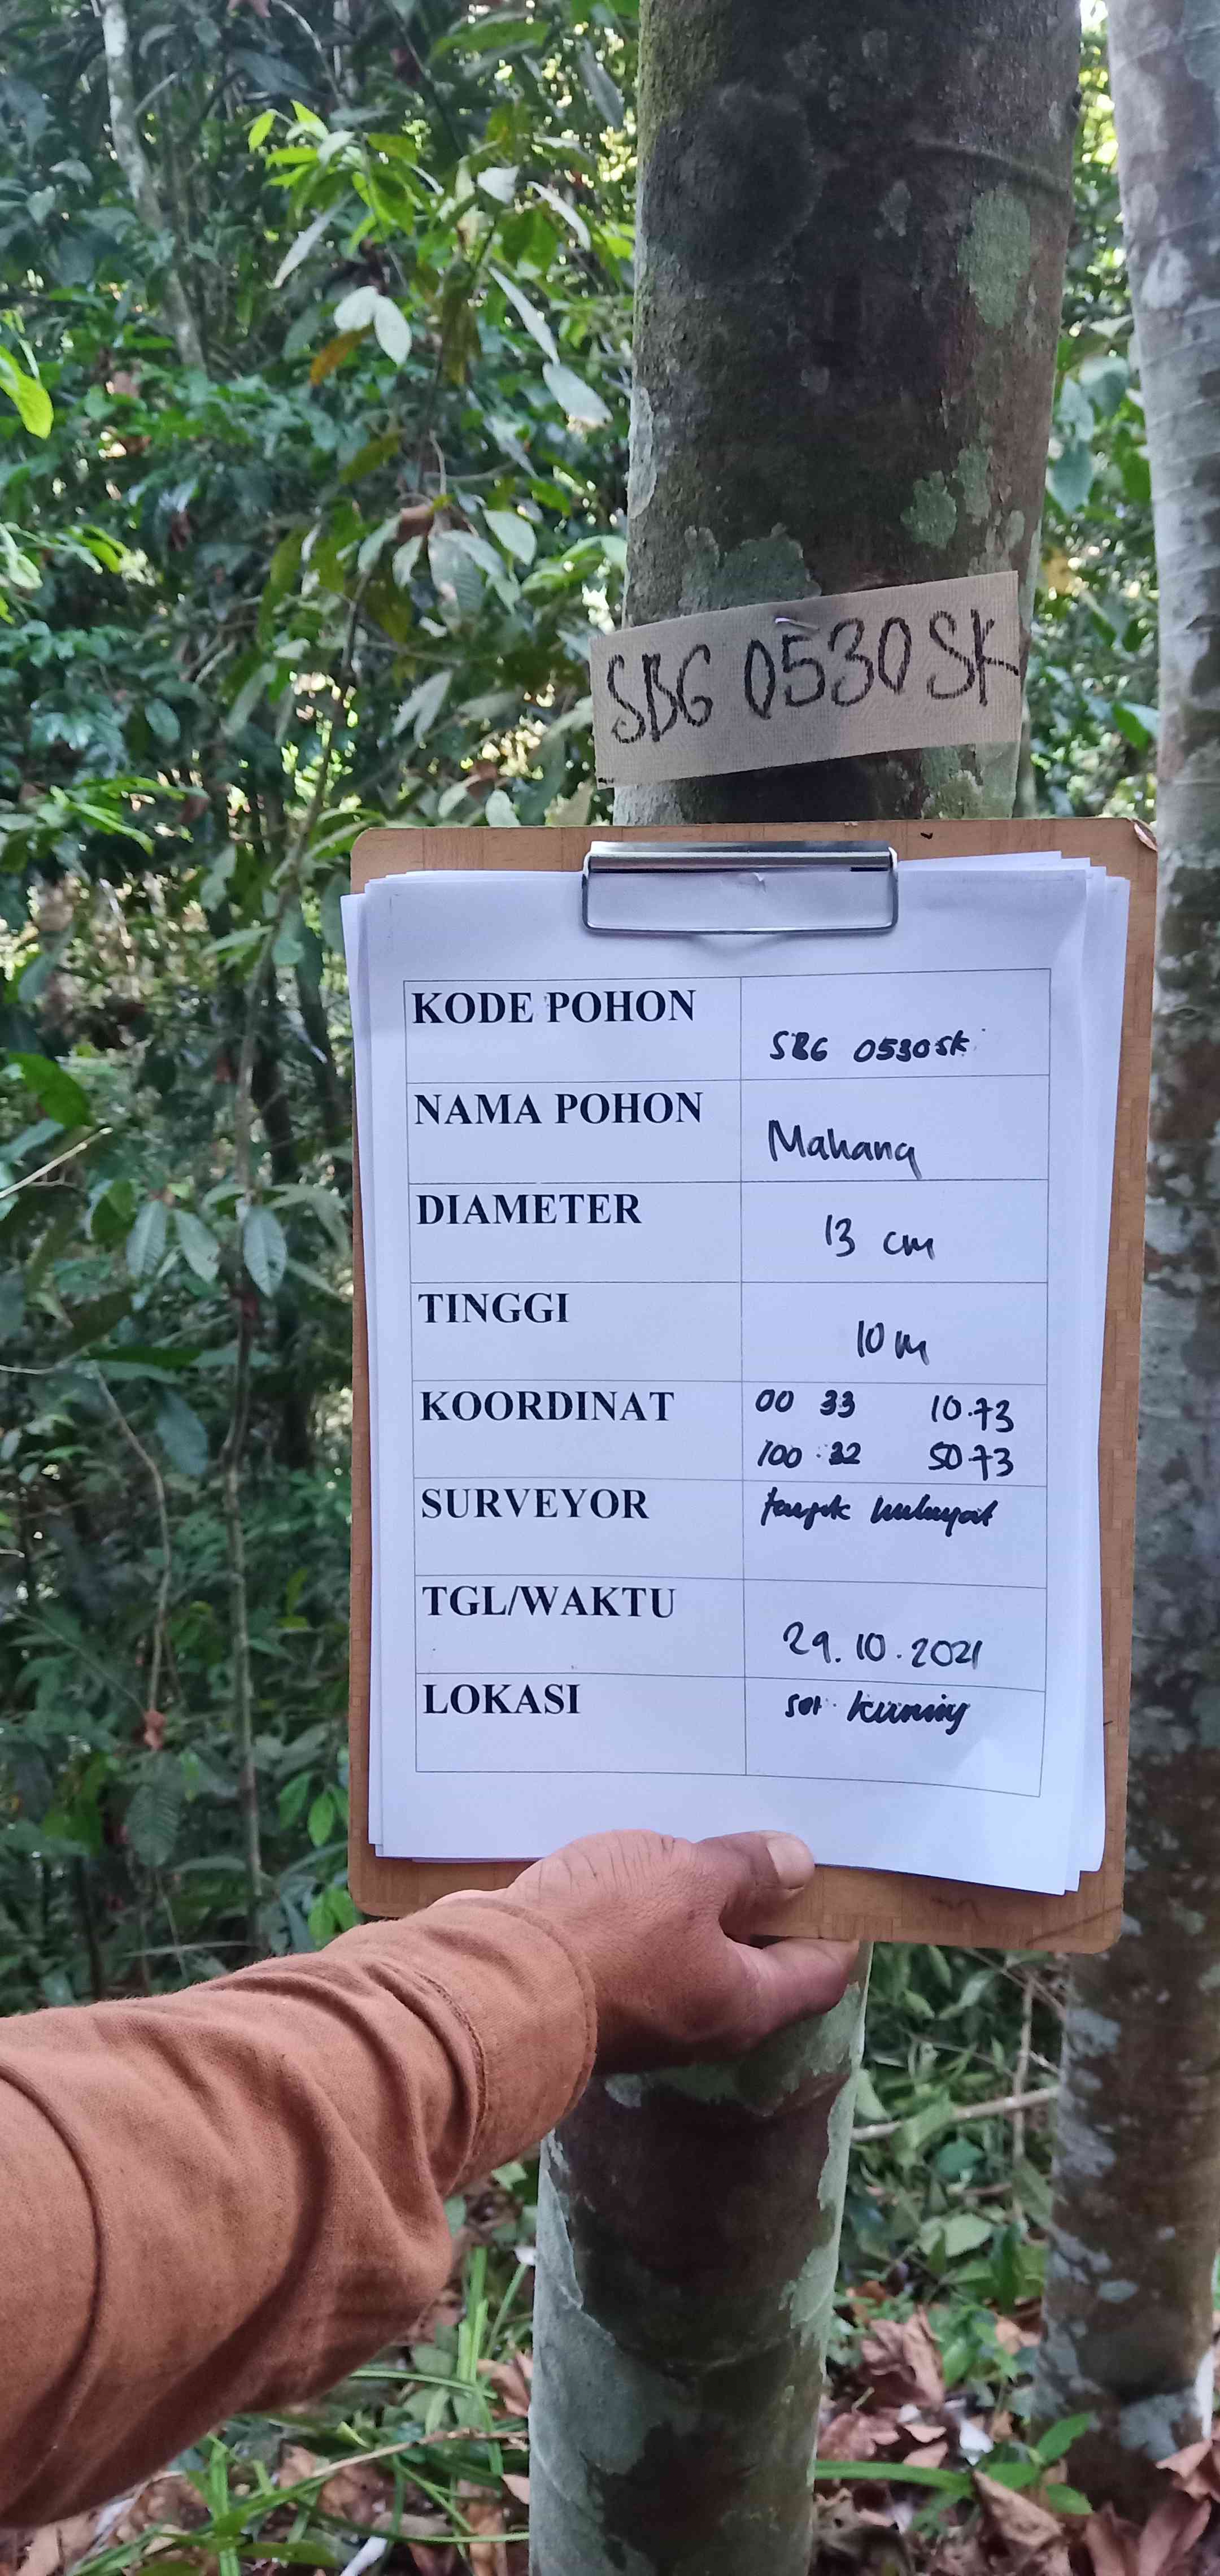 SBG 0530 SK
KODE POHON SBG 0530 SK
NAMA POHON Mahang
DIAMETER 13 cm
TINGGI 10 m
KOORDINAT 00 33 10.73
100 32 50.73
SURVEYOR hidayat
TGL/WAKTU 29.10.2021
LOKASI kuning